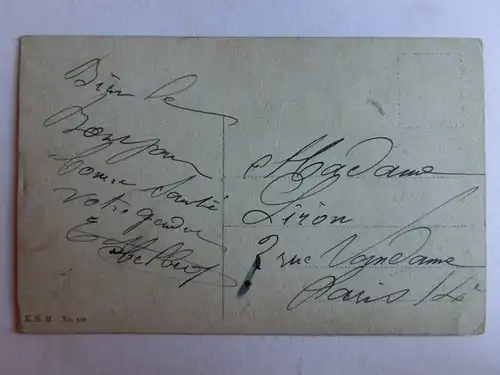 Bien le
Bonjour
bonne santé
votre gendre
Madame
Liron
2 rue
Paris 14e
E. S. M. No.